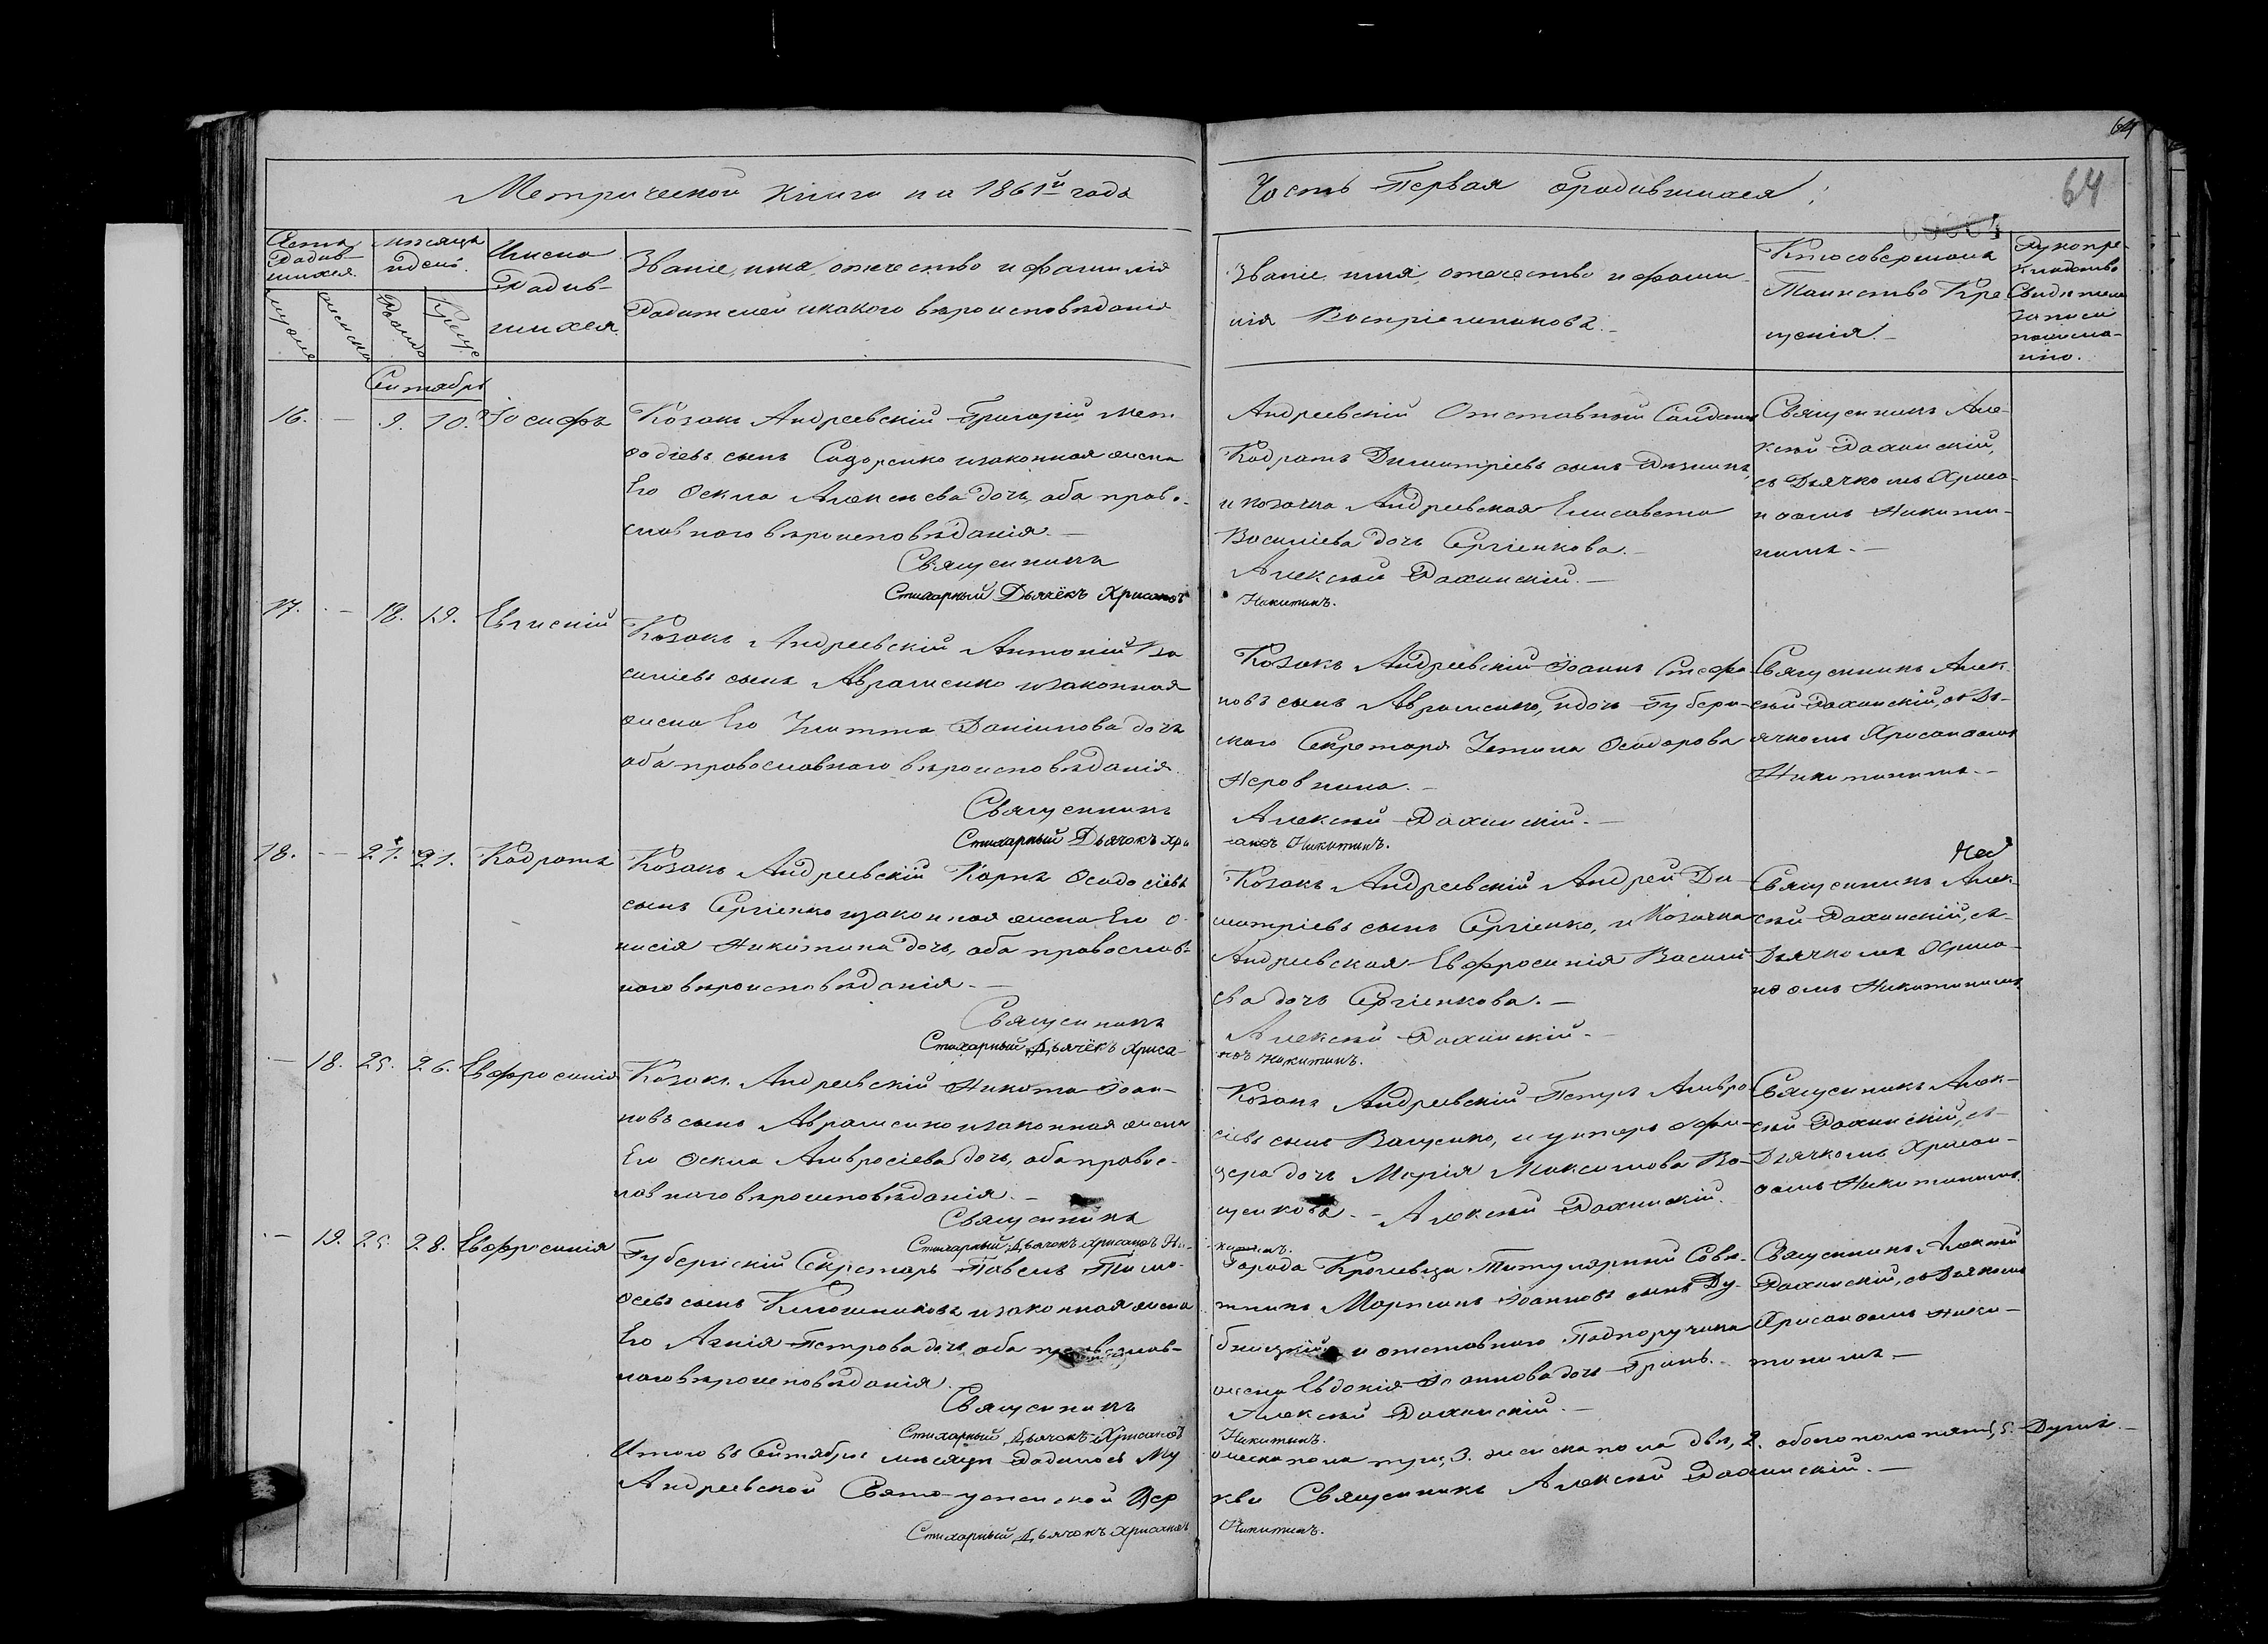 64
Метрической книги на 1861й года
Часть Первая ородившихся.
64
Счетъ Родившихся
мѣсяцъ и день
Имена Родившихся
Званіе, имя, отчество и фамилія
Родителей и какого вѣроисповѣданія
Званіе, имя, отчество и фами-
лія Воспріемниковъ.-
Кто совершалъ
Таинство Кре
щенія.-
Рукопри-
кладство
Свидетелей
записи
по желанію.
Сентябрь
16. - 9. 10. Іосифъ
Козакъ Андреевскій Григорій Меѳ
одіевъ сынъ Сидоренко и законная жена
Его Ѳекла Алексѣева дочь, оба право-
славнаго вѣроисповѣданія.-
Священникъ
Стихарный Дьячёкъ Хрисанѳъ
Андреевскій Отставный Солдатъ
Кодратъ Димитріевъ сынъ
и козачка Андреевская Елисавета
Василіева дочь Сергіенкова.-
Алексѣй Дахинскій.-
Никитинъ.
Священникъ Але-
ксѣй Дахинскій,
съ Дьячкомъ Хриса-
нѳомъ Никити-
нымъ.-
17. - 18. 19. Евгеній
Козакъ Андреевскій Антоній Ва
силіевъ сынъ Авраменко и законная
жена Его Улитта Даніилова дочь
оба православнаго вѣроисповѣданія.
Священникъ
Стихарный Дьячокъ Хри
Козакъ Андреевскій Іоаннъ Стефа
новъ сынъ Авраменко, и дочь Губерн-
скаго Секретаря Ѳеодорова
Неровнина.-
Алексѣй Дахинскій.-
санѳъ Никитинъ.
Священникъ Алек-
сѣй Дахинскій, съ Дь-
ячкомъ Хрисанѳомъ
Никитинымъ.-
18. - 21. 21. Кодратъ
Козакъ Андреевскій Карпъ Ѳеодосіевъ
сынъ Сергіенко и законная жена Его О-
нисія Никитина дочь, оба православ-
наго вѣроисповѣданія.-
Священникъ
Стихарный Дьячёкъ Хриса-
Козакъ Андреевскій Андрей Ди-
митріевъ сынъ Сергіенко, и Козачка
Андреевская Евфросинія Васили
ева дочь Сергіенкова.-
Алексѣй Дахинскій.-
нѳъ Никитинъ.
Священникъ Алек-
сѣй Дахинскій, съ
Дьячкомъ Хриса-
нѳомъ Никитинымъ
- 18. 25. 26. Евфросинія
Козакъ Андреевскій Никита Іоан-
новъ сынъ Авраменко и законная жена
Его Ѳекла Амвросіева дочь, оба правос-
лавнаго вѣроисповѣданія.-
Священникъ
Стихарный Дьячокъ Хрисанѳъ Ни-
Козакъ Андреевскій Петръ Амвро
сіевъ сынъ Ващенко, и унтеръ офи-
цера дочь Марія Максимова Ва-
щенкова.- Алексѣй Дахинскій.
китинъ.
Священникъ Алек-
сѣй Дахинскій, съ
Дьячкомъ Хрисан-
ѳомъ Никитинымъ.
- 19. 25. 28. Евфросинія
Губернскій Секретарь Павелъ Тимо-
ѳеевъ сынъ Ключниковъ и законная жена
Его Агнія Петрова дочь оба православ-
наго вѣроисповѣданія.
Священникъ
Стихарный Дьячокъ Хрисанѳъ
Города Кролевца Титулярный Совѣ-
тникъ Мартинъ Іоанновъ сынъ Ду-
бницкій и отставнаго Подпоручика
жена Евдокія Іоаннова дочь
Алексѣй Дахинскій.-
Никитинъ.
Священникъ Алексѣй
Дахинскій, съ Дьячкомъ
Хрисанѳомъ Ники-
тинымъ.-
Итого въ Сентябрѣ мѣсяцѣ Родилось му
жеска пола три, 3. женска пола двѣ, 2. обоего пола пять, 5. Душъ.-
Андреевской Свято-успенской Цер
кви Священникъ Алексѣй Дахинскій.-
Стихарный Дьячокъ Хрисанѳъ
Никитинъ.